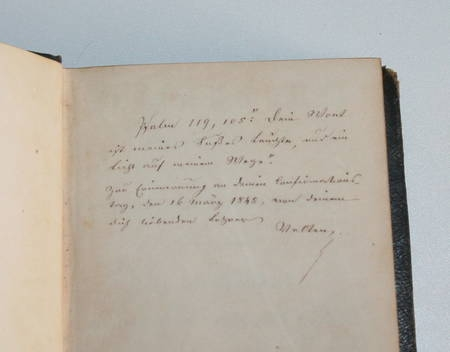 Psalm 119, 105: "Dein Wort
ist meines Fußes Leuchte, und ein
Licht auf meinem Wege."
Zur Erinnerung an deinen Confirmations-
tag, den 16 März 1845, von deinem
dich liebenden Lehrer